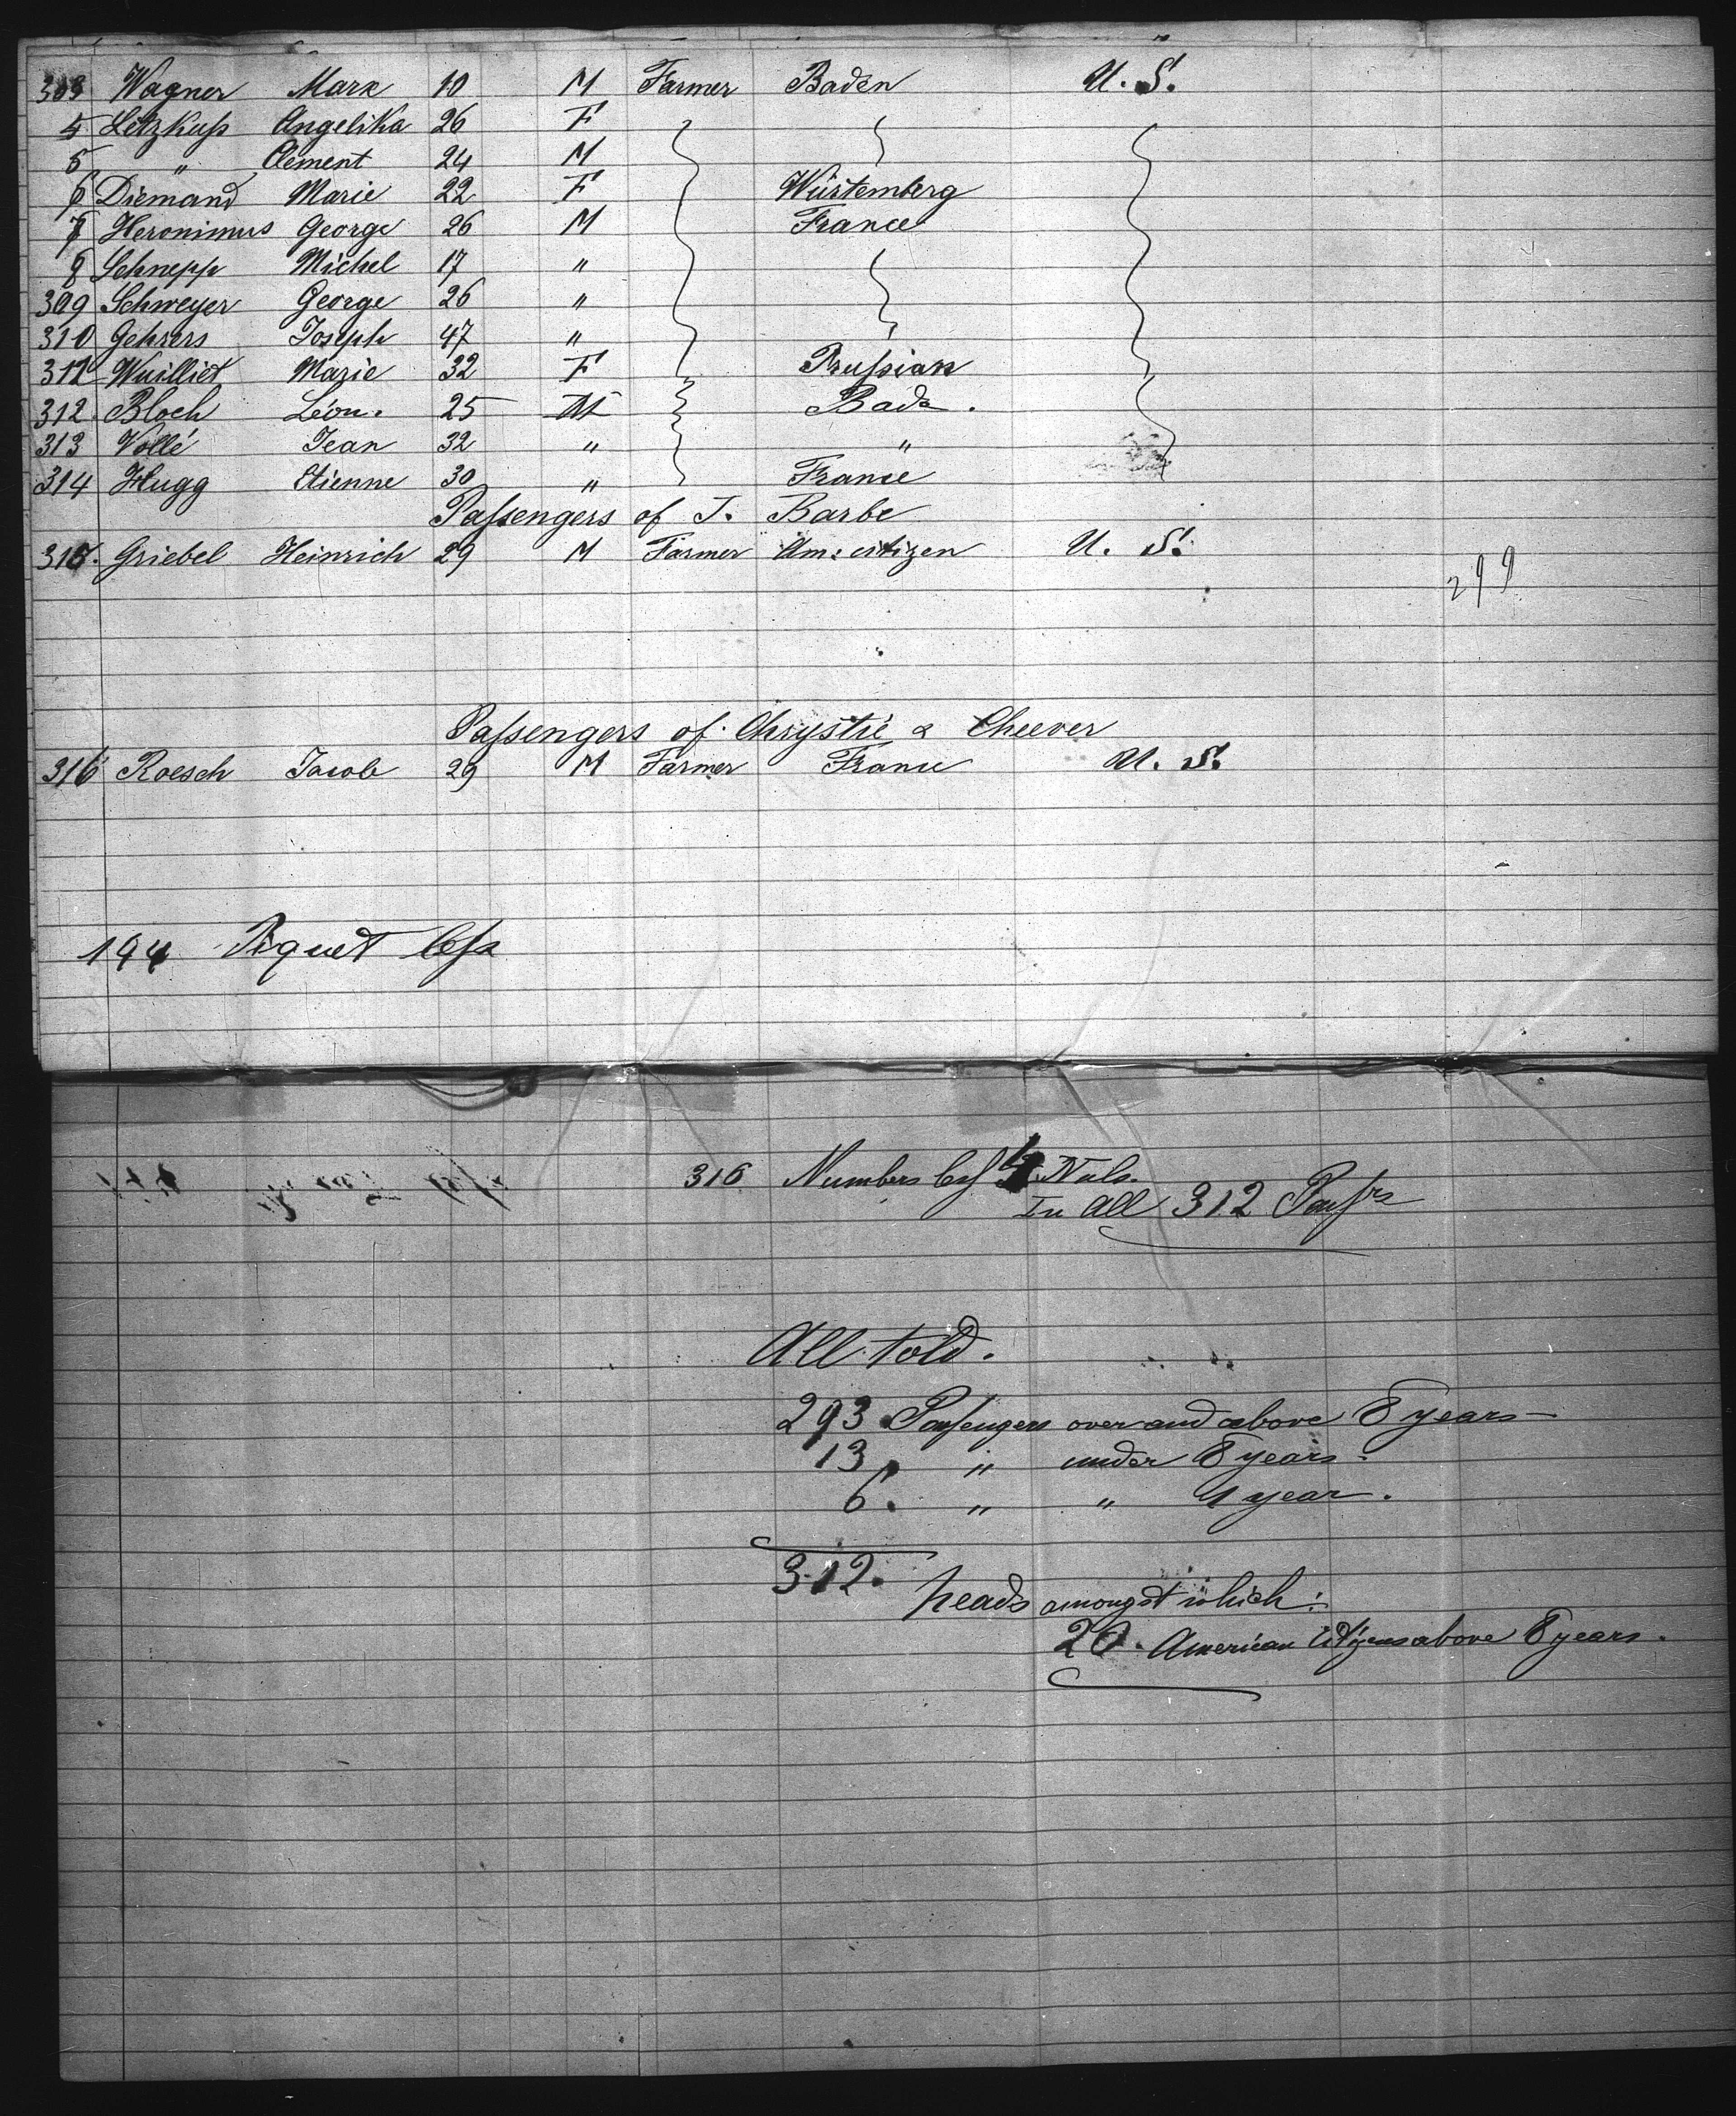 303 Wagner Mark 10 M Farmer Baden U. S.
4 Letzkuss Angelika 26 F
5 " Clement 24 M
6 Diemand Marie 22 F Würtemberg
7 Heronimus George 26 M France
8 Schnepp Michel 17 "
309 Schweyer George 26 "
310 Gehrers Joseph 47 "
311 Wuilliet Marie 32 F Prussian
312 Bloch Léon. 25 M Bade.
313 Vollé Jean 32 " "
314 Hugg Etienne 30 " France
Passengers of J. Barbe
315. Griebel Heinrich 29 M Farmer Am: citizen U. S.
299
Passengers of Chrystie & Cheever
316 Roesch Jacob 29 M Farmer France U. S.
194 Piquet
316 Numbers less 4 Nuls.
In All 312 Passrs
All told.
293 Passengers over and above 8 years
13 " under 8 years.
6. " " 1 year.
312. heads amongst which:
20. American Citizens above 8 years.